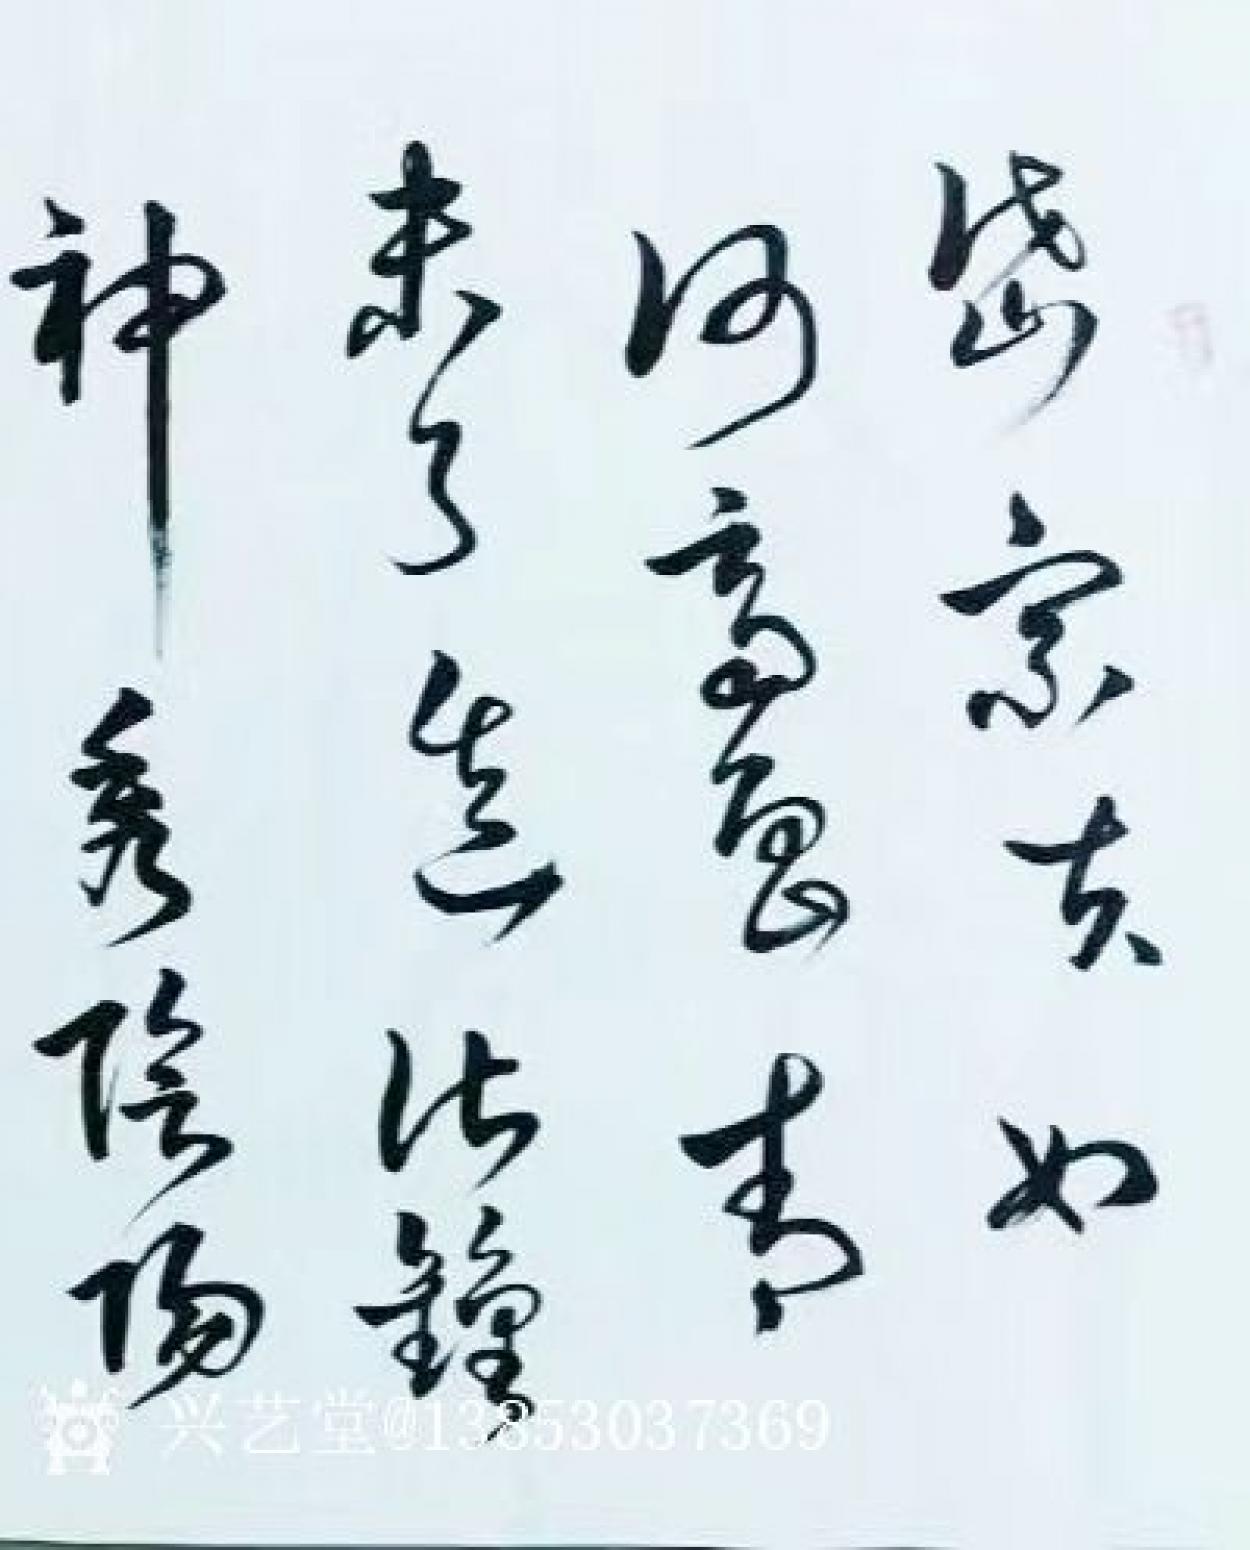 岱宗夫如
何齊魯青
未了造化鍾
神秀陰陽
兴艺堂@13853037369